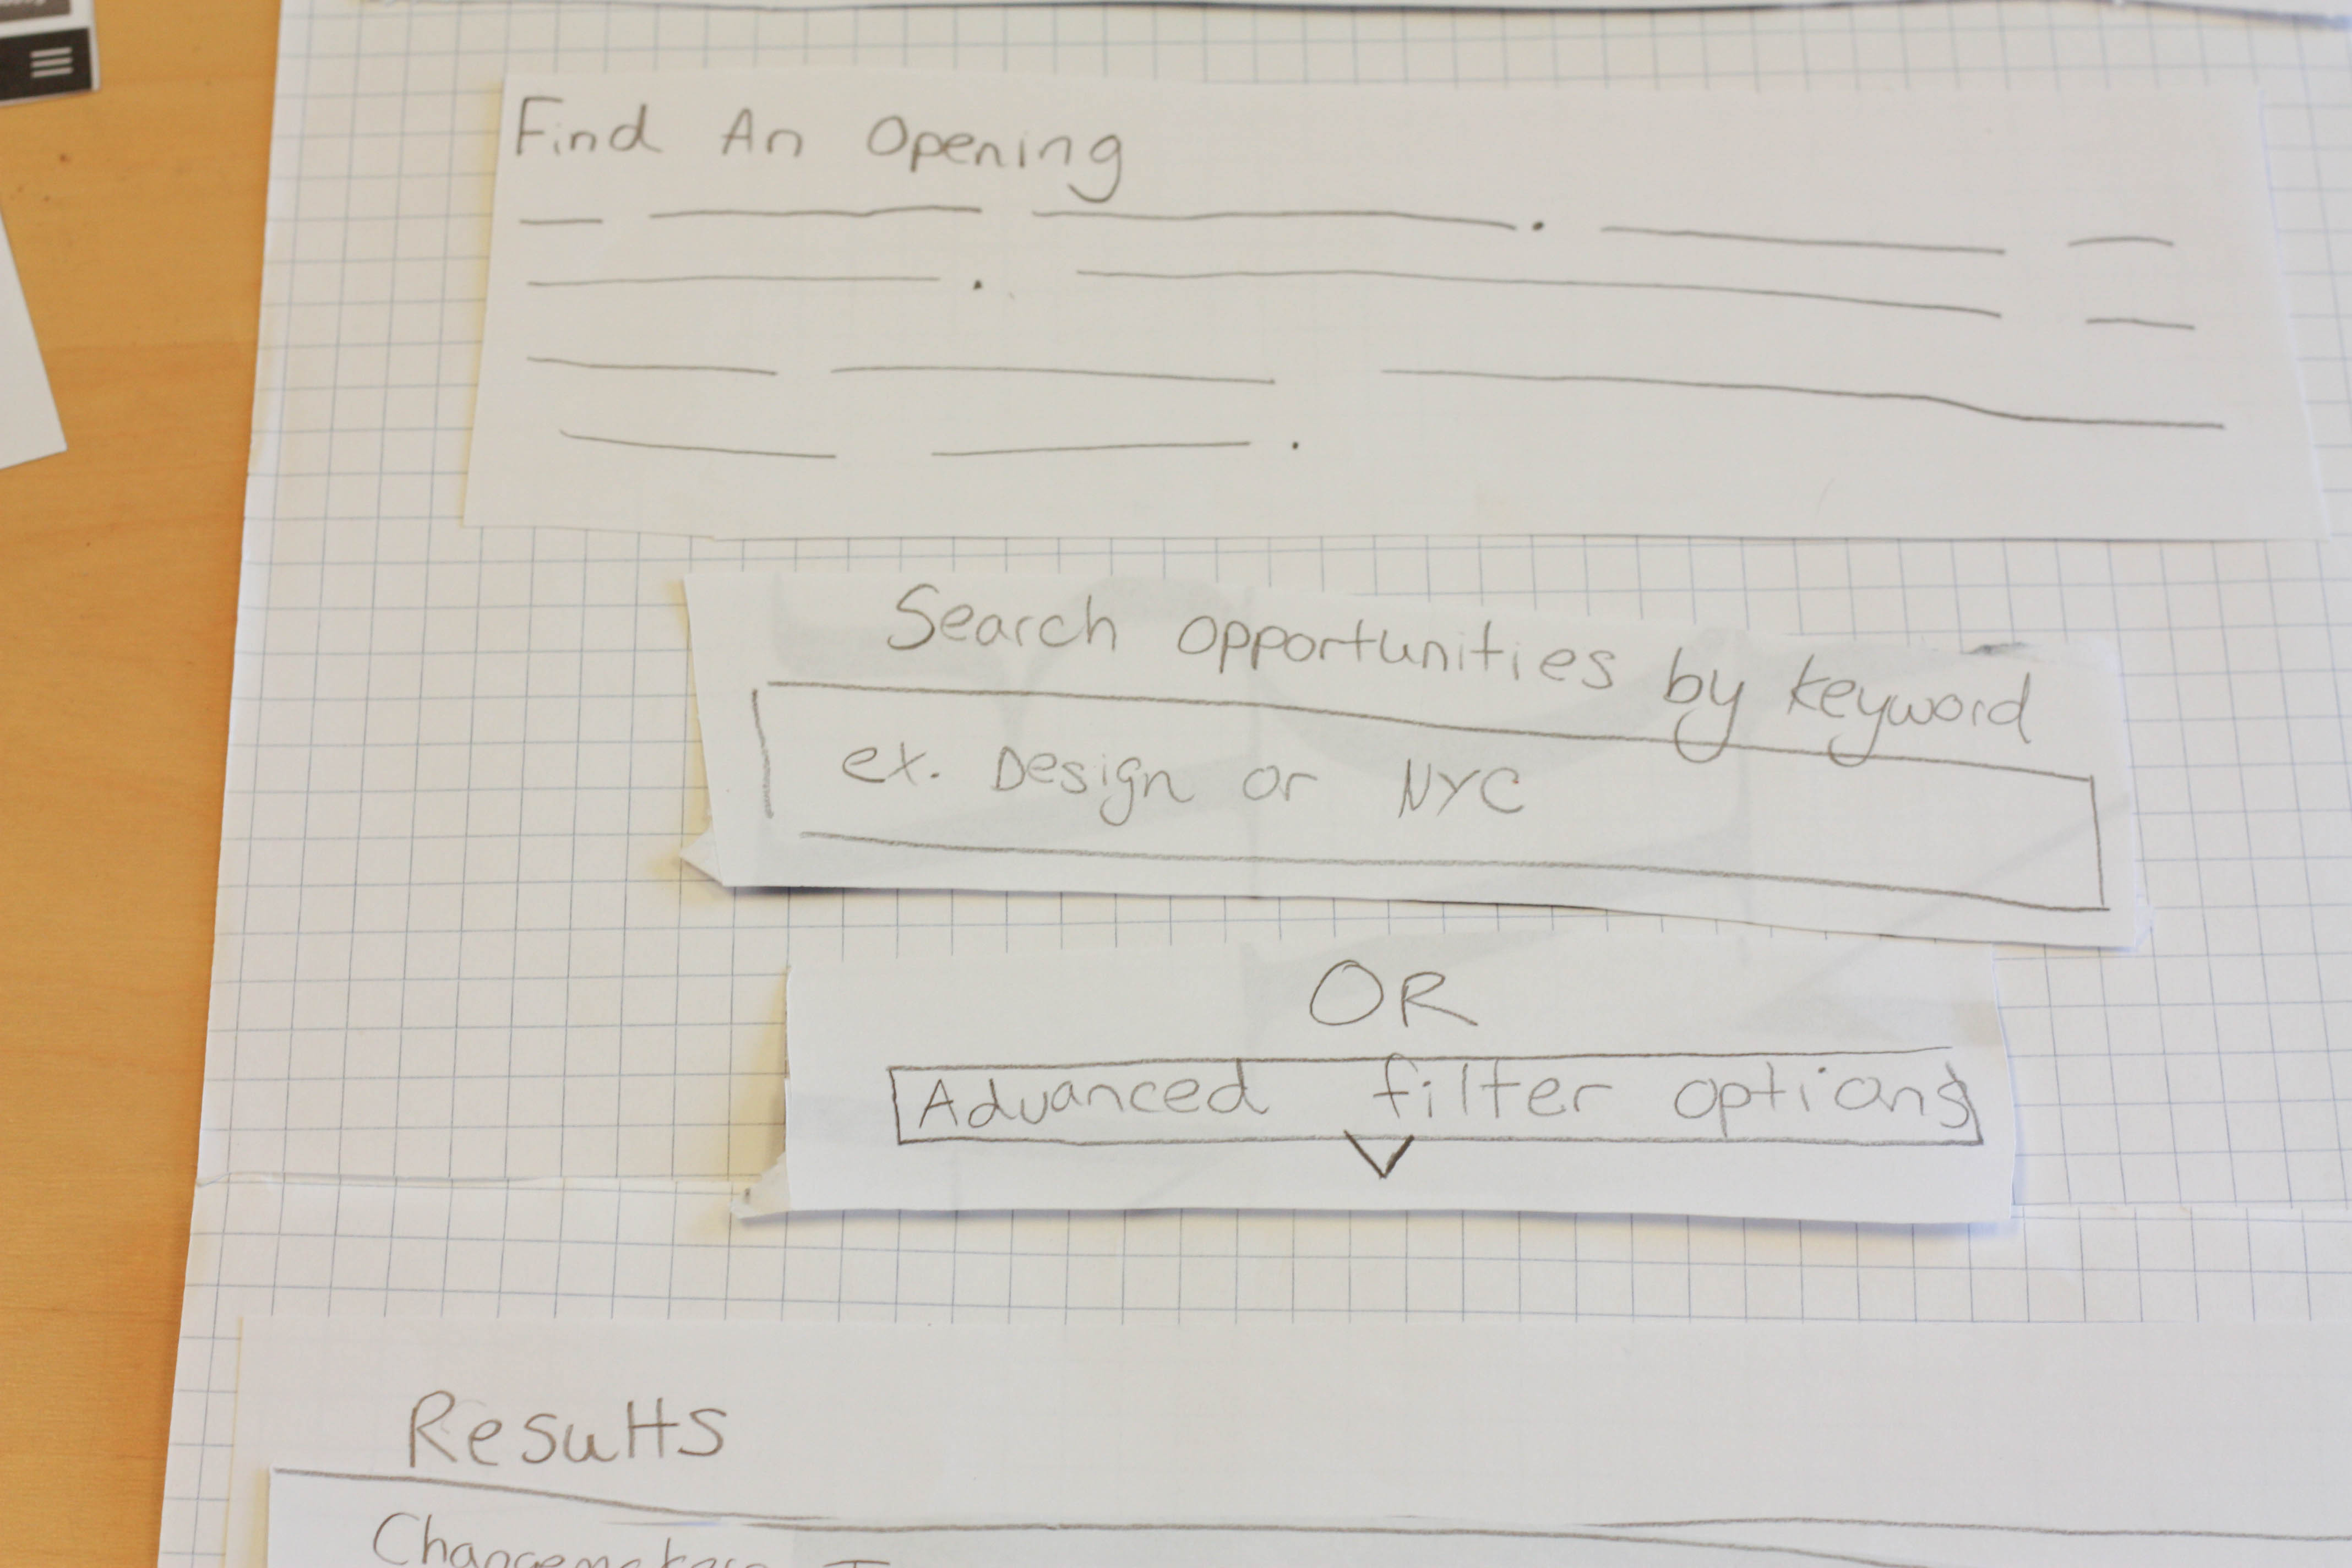 Find An Opening
Search opportunities by keyword
ex. Design or NYC
OR
Advanced filter options
Results